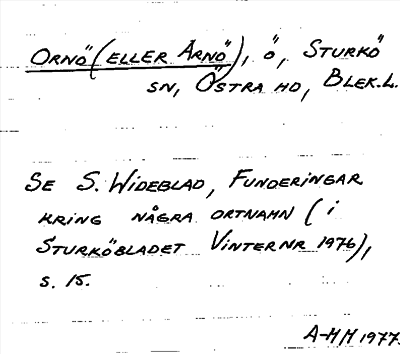 ORNÖ (ELLER ÅRNÖ), Ö, STURKÖ
SN, ÖSTRA HD, BLEK. L.
SE S. WIDEBLAD, FUNDERINGAR
KRING NÅGRA ORTNAMN (I
STURKÖBLADET VINTERNR 1976),
S. 15.
A-M H 1977.